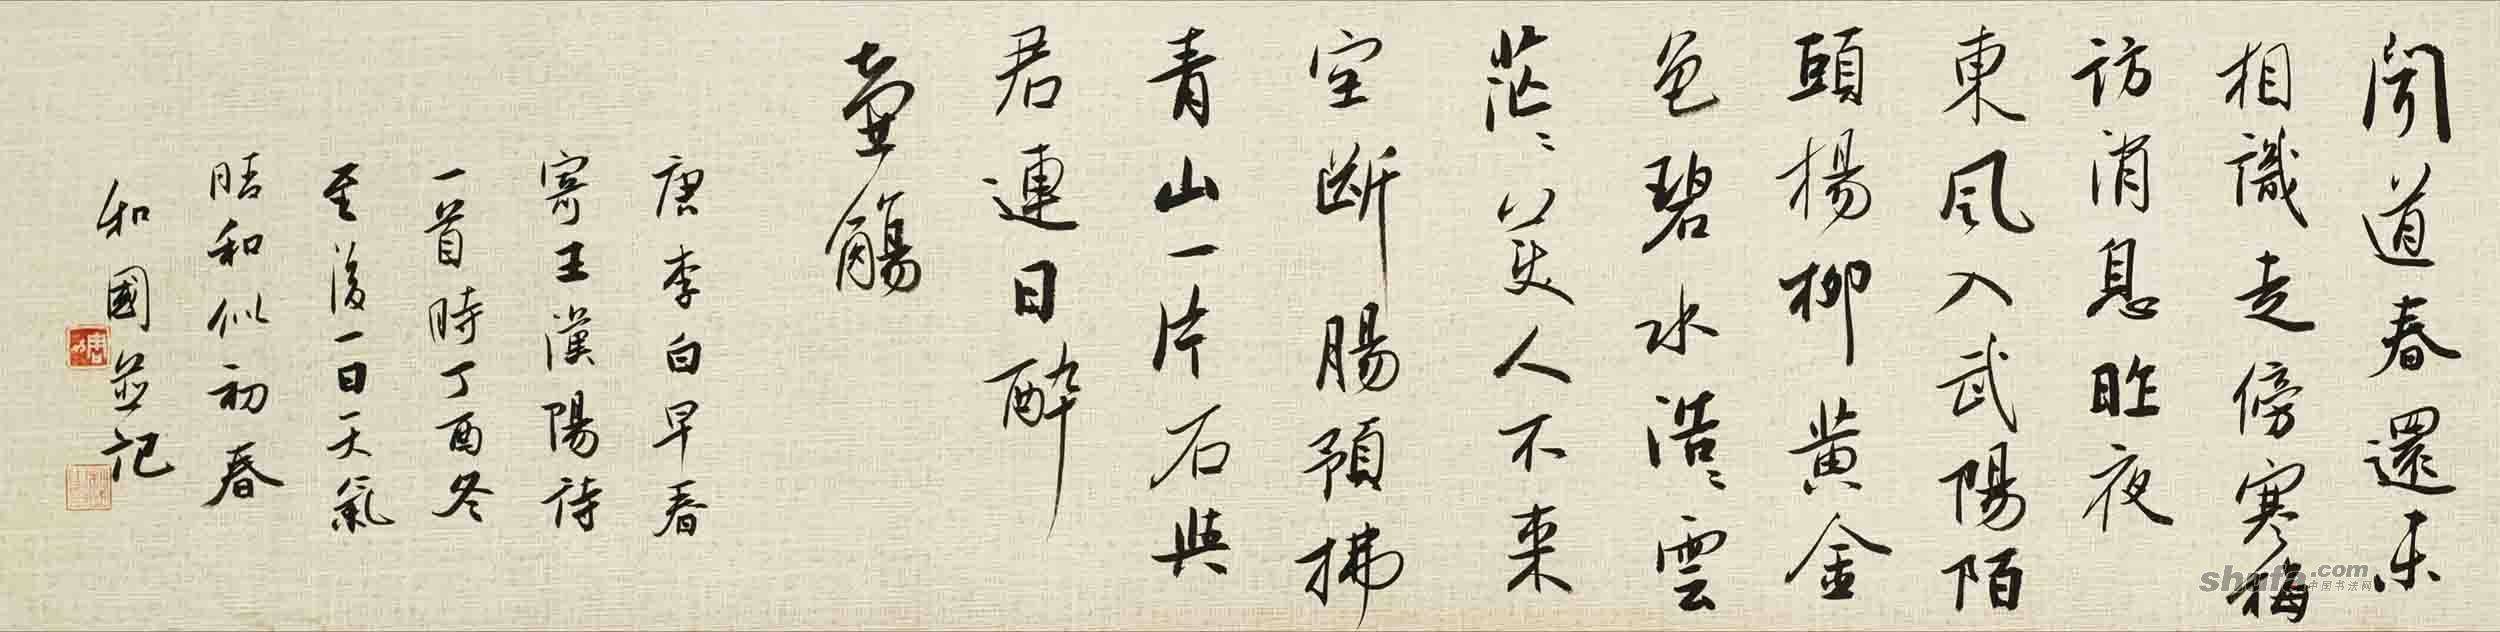 聞道春還未
相識走傍寒梅
訪消息昨夜
東風入武陽陌
頭楊柳黃金
色碧水浩〻雲
茫〻美人不來
空斷腸預拂
青山一片石與
君連日醉
壺觴
唐李白早春
寄王漢陽詩
一首時丁酉冬
至後一日天氣
晴和似初春
和國並記
shufa.com
中国书法网